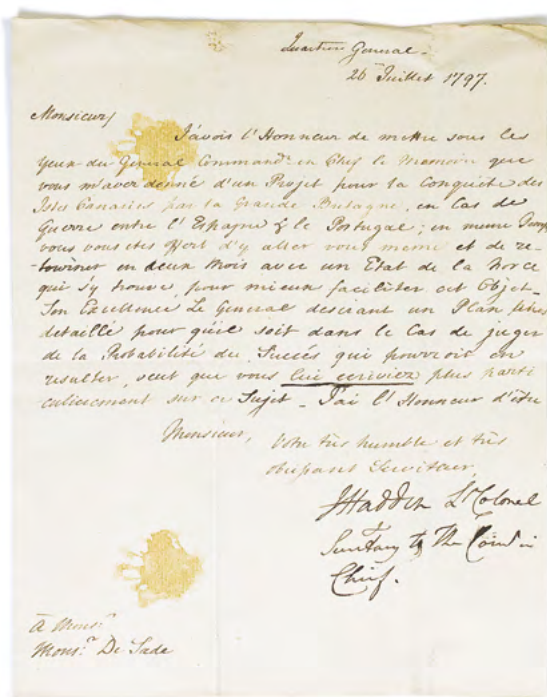 Quartier General.
26 Juillet 1797.
Monsieur
J'avois l'Honneur de mettre sous les
yeux du General Commandt. en Chef le Memoire que
vous m'avez donné d'un Projet pour la Conquête des
Isles Canaries par la Grande Bretagne, en Cas de
Guerre entre l'Espagne & le Portugal; en meme Temps
vous vous etes offert d'y aller vous meme et de re-
-tourner en deux Mois avec un Etat de la Force
qui s'y trouve, pour mieux faciliter cet Objet.
Son Excellence Le General desirant un Plan
detaillé pour qu'il soit dans le Cas de juger
de la Probabilité du Succès qui pourroit en
resulter, veut que vous lui ecriviez plus parti
culierement sur ce Sujet - J'ai l'Honneur d'être
Monsieur,
Votre très humble et très
obeissant Serviteur
Lt. Colonel
Secretary to The Com in
Chief.
à Monsr.
Monsr. De Sade